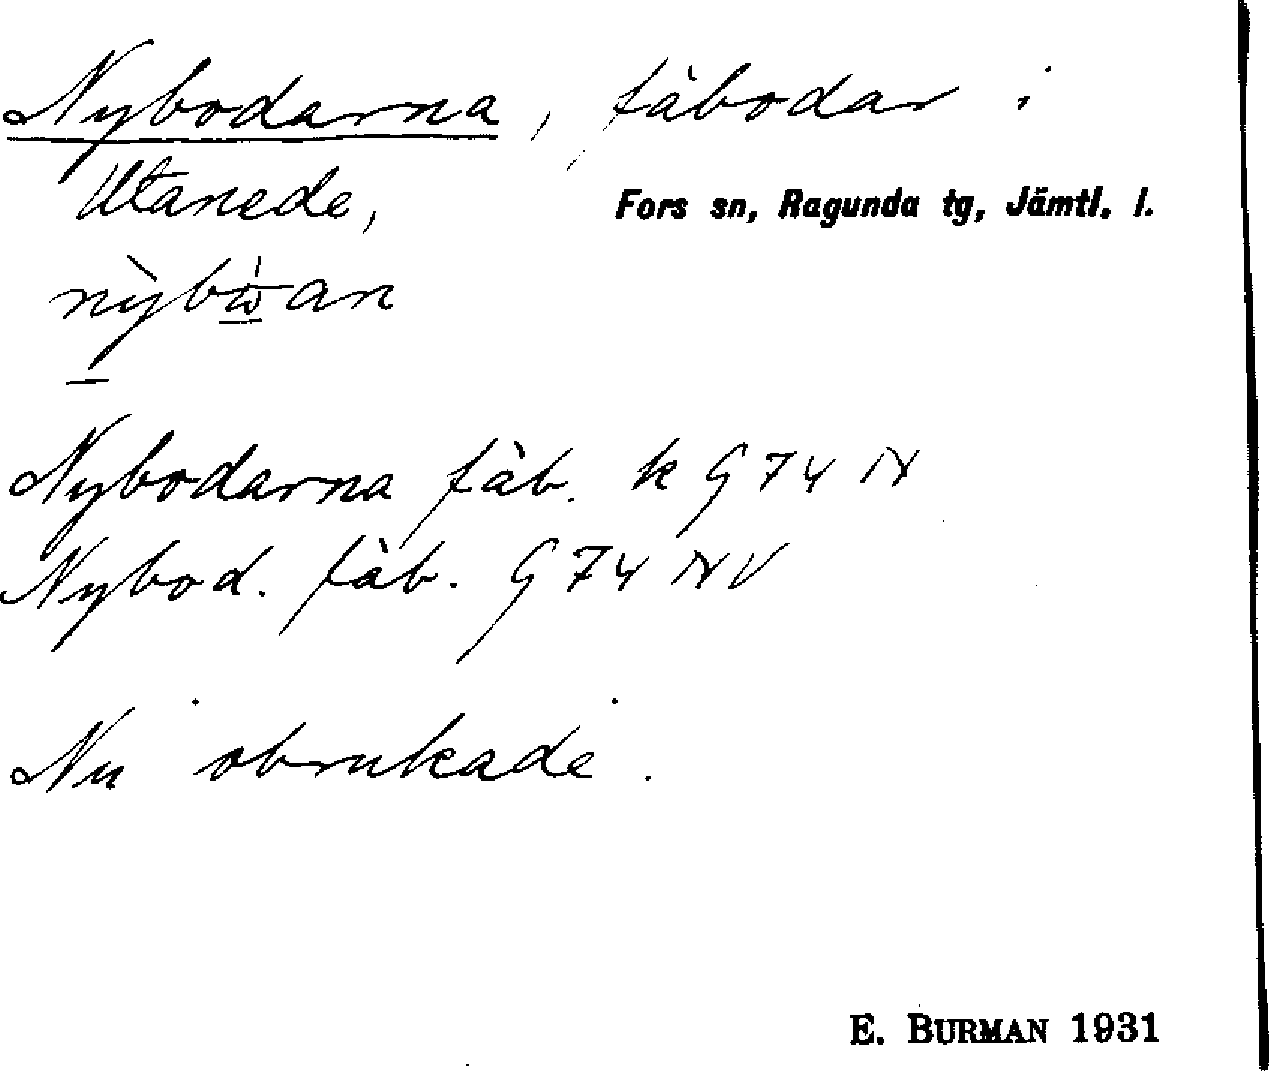 Nybodarna, fäbodar i
Utanede, Fors sn, Ragunda tg, Jämtl. l.
Nybodarna fäb. k G 74 N
Nybod. fäb. G 74 NV
Nu obrukade.
E. BURMAN 1931